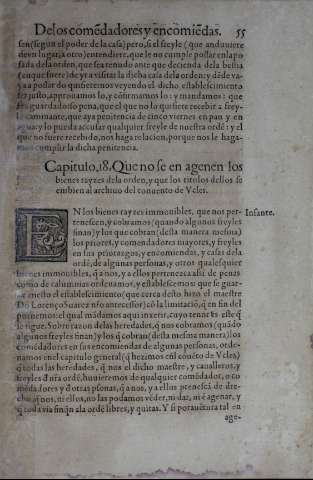 De los comẽdadores y encomiẽdas. 55
sen (segun el poder de la casa) pero, si el freyle (que anduuiere
de vn lugar, a otro) entendiere, que le no cumple posar en la po
sada de la orden, que sea tenudo ante que decienda dela bestia
(en que fuere) de yr a visitar la dicha casa dela orden: y dède va-
ya a posar do quisiere: nos veyendo el dicho establecimiento
ser justo, approuamos lo, y cõfirmamos lo: y mandamos: que
sea guardado so pena, que el que no lo quisiere recebir a frey-
le caminante, que aya penitencia de cinco viernes en pan y en
agua: y lo pueda accusar qualquier freyle de nuestra ordẽ: y el
que no fuere recebido, nos haga relacion, porque nos le haga-
mos cumplir la dicha penitencia.
Capitulo, 18. Que no se en agenen los
bienes rayzes dela orden, y que los titulos dellos se
embien al archiuo del conuento de Vcles.
EN los bienes rayzes immouibles, que nos per- Infante.
tenescen, y cobramos (quando algunos freyles
finan) y los que cobran (desta manera mesma)
los priores, y comendadores mayores, y freyles
en sus priorazgos, y encomiendas, y casas dela
ordẽ, de algunas personas, y otros qualesquier
bienes immouibles, q̃ a nos, y a ellos pertenezca assi de penas
como de calumnias ordenamos, y establescemos: que se guar-
de en esto el establescimiento (que cerca desto hizo el maestre
Dõ Lorenço Suarez nřo antecessor) cõ la limitaciõ, q̃ en fin del
pornemos: el qual mãdamos aqui inxerir, cuyo tenor es este q̃
se sigue. Sobre razon delas heredades, q̃ nos cobramos (quãdo
algunos freyles finan) y los q̃ cobran (desta mesma manera) los
comẽdadores en sus encomiendas de algunas personas, orde-
namos en el capitulo general (q̃ hezimos enel conuẽto de Vcles)
q̃ todas las heredades, q̃ nos el dicho maestre, y caualleros, y
freyles d̃ nřa ordẽ, huuieremos de qualquier comẽdador, o co
mẽdadores y d̃ otras psonas, q̃ a nos, y a ellos prenesca de dre-
cho, q̃ nos, ni ellos, no las podamos vẽder, ni dar, ni ẽ agenar, y
q̃ toda via finq̃n ala ordẽ libres, y quitas. Y si porauẽtura tal en
age-